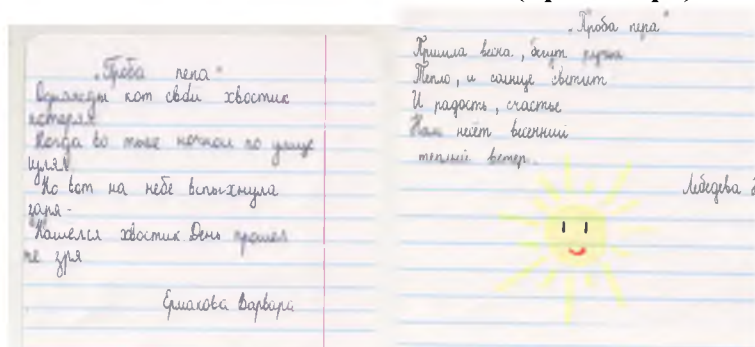 „Проба пера"
Однажды кот свой хвостик
потерял
Когда во тьме ночной по улице
гулял.
Но вот на небе вспыхнула
заря -
Нашёлся хвостик День прошел
не зря
Ермакова Варвара
„Проба пера"
Пришла весна, бегут ручьи
Тепло, и солнце светит
И радость, счастье
Нам несёт весенний
теплый ветер.
Лебедева